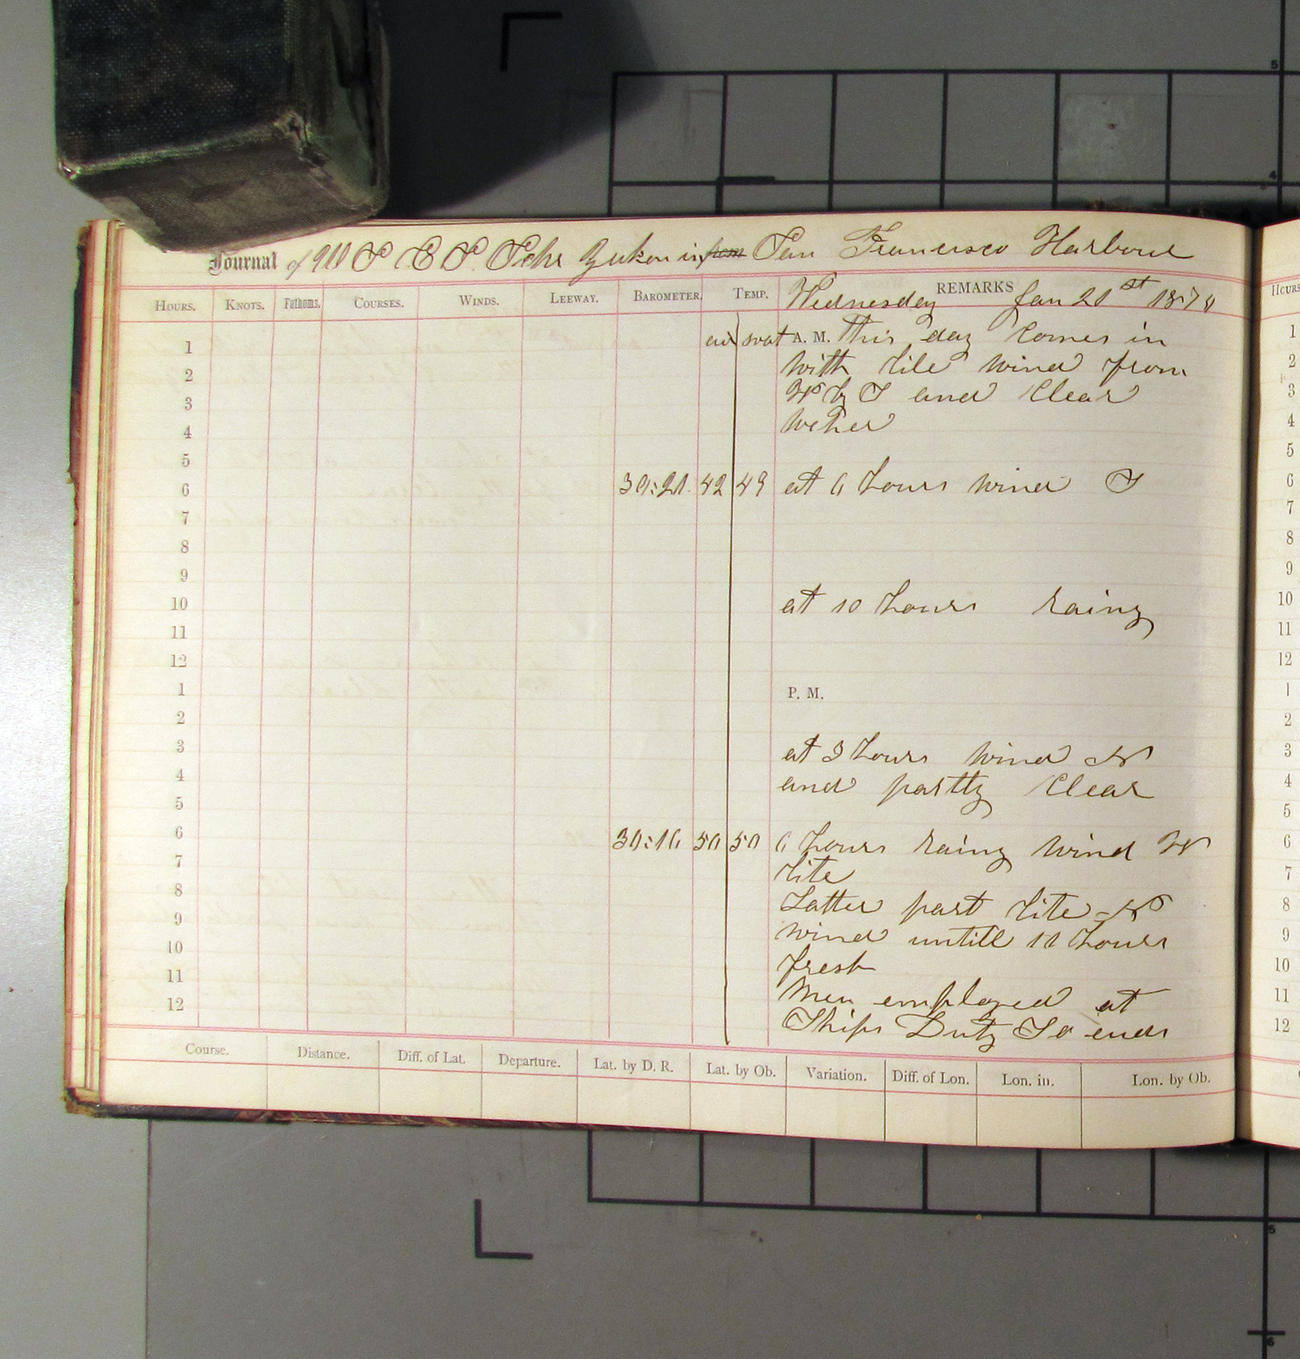 Journal of U S C S Schr Yukon in from San Francisco Harbour
HOURS. KNOTS. Fathoms. COURSES. WINDS. LEEWAY. BAROMETER. TEMP. REMARKS
Wednesday Jan 21st 1874
1 air wat A. M. This day Comes in 1
2 with lite wind from 2
3 W by S and Clear 3
4 wether 4
5 5
6 30:21 42 49 at 6 hours wind S 6
7 7
8 8
9 9
10 at 10 hours rainy 10
11 11
12 12
1 P. M. 1
2 2
3 at 3 hours wind N 3
4 and partly Clear 4
5 5
6 30:16 50 50 6 hours rainy wind W 6
7 lite 7
8 Latter part lite N 8
9 wind untill 11 hours 9
10 fresh 10
11 Men employed at 11
12 Ships Duty So ends 12
Course. Distance. Diff. of Lat. Departure. Lat. by D. R. Lat. by Ob. Variation. Diff. of Lon. Lon. in. Lon. by Ob.